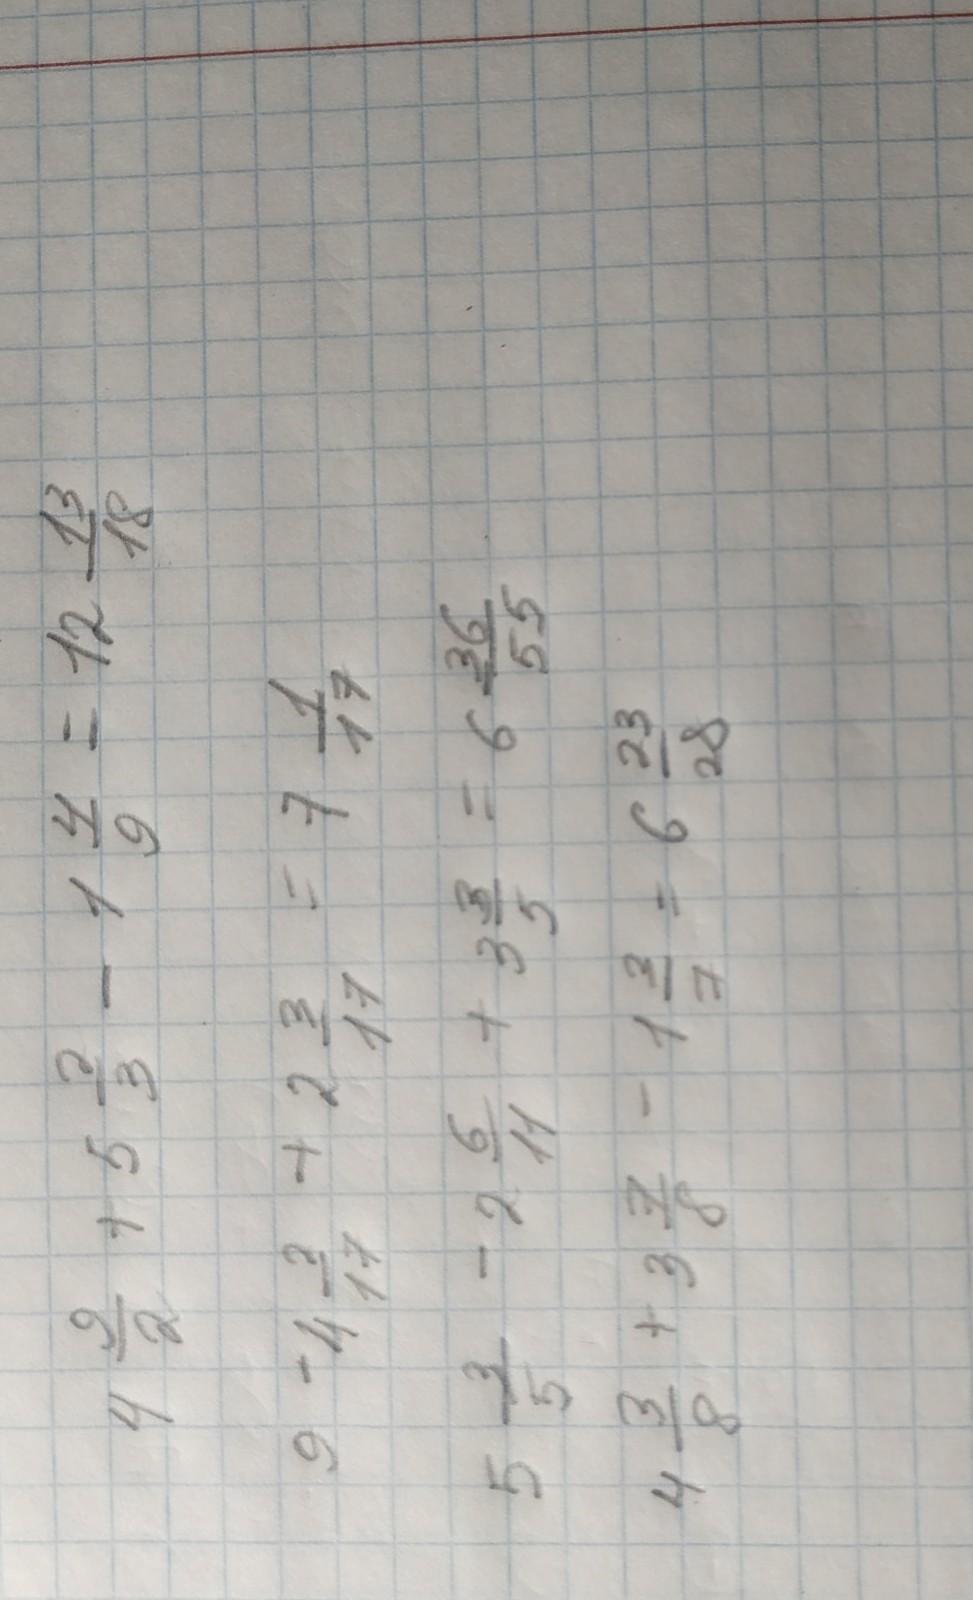 4 9/2 + 5 2/3 - 1 4/9 = 12 13/18
9 - 4 2/17 + 2 3/17 = 7 1/17
5 3/5 - 2 6/11 + 3 3/5 = 6 36/55
4 3/8 + 3 7/8 - 1 3/7 = 6 23/28